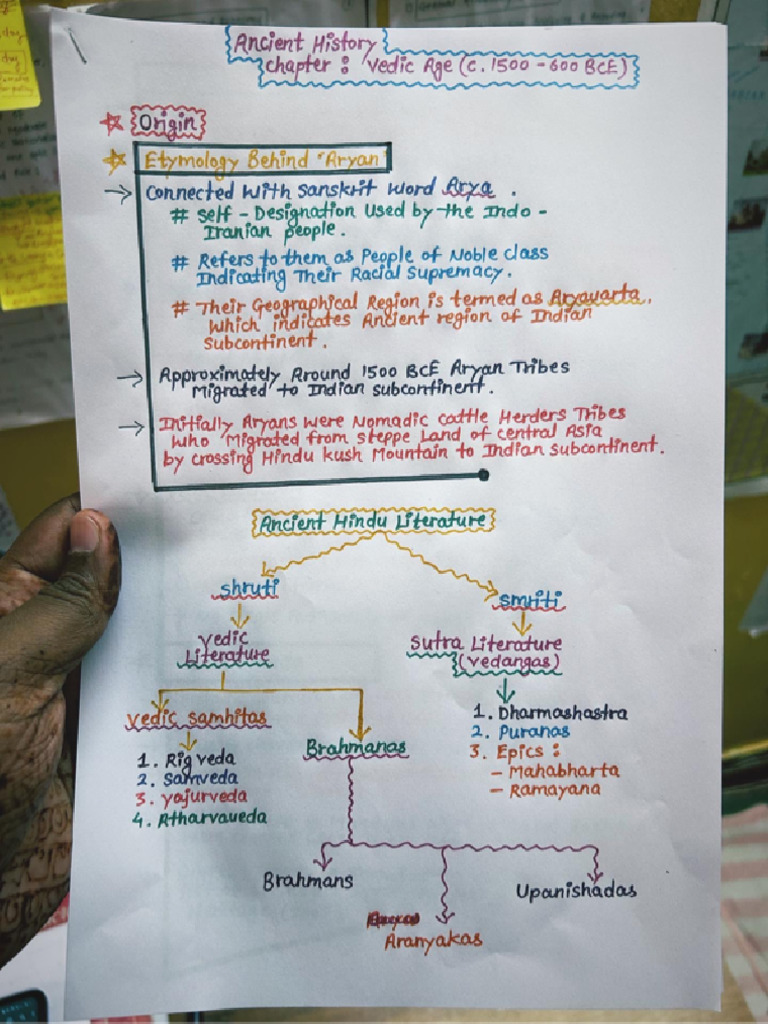 Ancient History
chapter : Vedic Age (c. 1500 - 600 BCE)
Origin
Etymology Behind "Aryan"
→ Connected With Sanskrit Word Arya .
# Self - Designation Used by the Indo -
Iranian people .
# Refers to them as People of Noble class
Indicating Their Racial Supremacy .
# Their Geographical Region is termed as Aryavarta,
Which indicates Ancient region of Indian
Subcontinent .
→ Approximately Around 1500 BCE Aryan Tribes
Migrated to Indian subcontinent .
→ Initially Aryans were Nomadic cattle Herders Tribes
Who Migrated from steppe Land of central Asia
by crossing Hindu kush Mountain to Indian subcontinent .
Ancient Hindu Literature
Shruti
Smriti
Vedic
Literature
Sutra Literature
(vedangas)
Vedic Samhitas
1. Rig veda
2. Samveda
3. Yajurveda
4. Atharvaveda
Brahmanas
1. Dharmashastra
2. Puranas
3. Epics :
- Mahabharta
- Ramayana
Brahmans
Aranyakas
Upanishadas